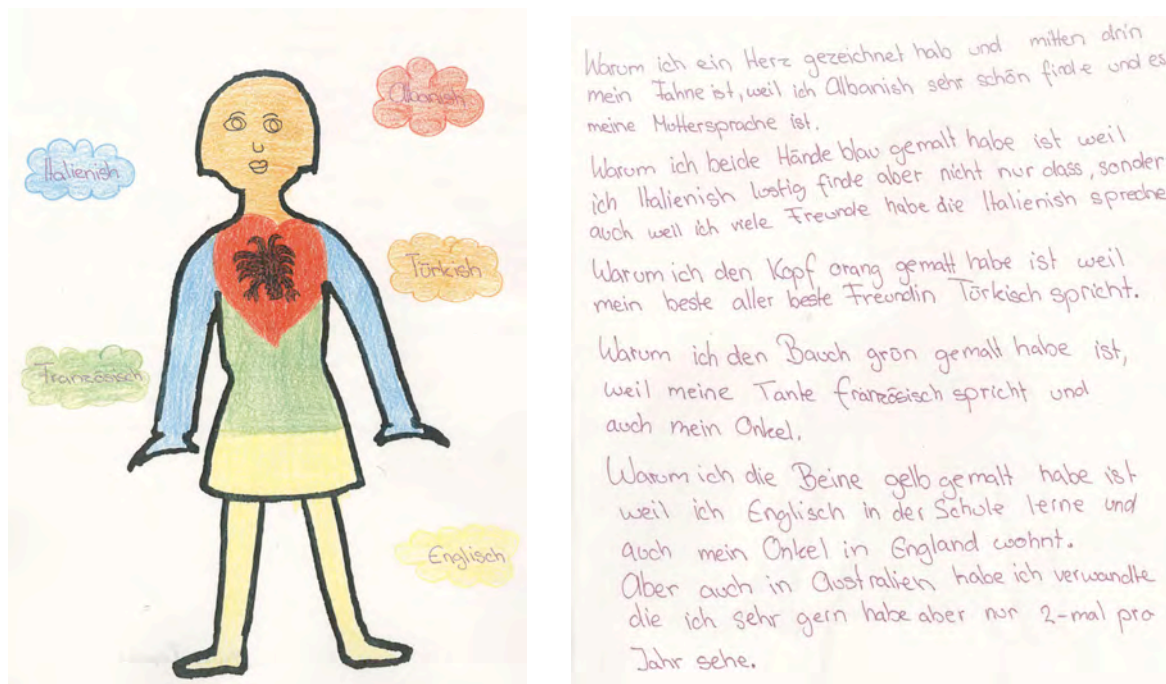 Albanish
Italienish
Türkish
Französisch
Englisch
Warum ich ein Herz gezeichnet hab und mitten drin
mein Fahne ist, weil ich Albanish sehr schön finde und es
meine Muttersprache ist.
Warum ich beide Hände blau gemalt habe ist weil
ich Italienish lustig finde aber nicht nur dass, sonder
auch weil ich viele Freunde habe die Italienish spreche
Warum ich den Kopf orang gemalt habe ist weil
mein beste aller beste Freundin Türkisch spricht.
Warum ich den Bauch grün gemalt habe ist,
weil meine Tante französisch spricht und
auch mein Onkel.
Warum ich die Beine gelb gemalt habe ist
weil ich Englisch in der Schule lerne und
auch mein Onkel in England wohnt.
Aber auch in Australien habe ich verwandte
die ich sehr gern habe aber nur 2-mal pro
Jahr sehe.